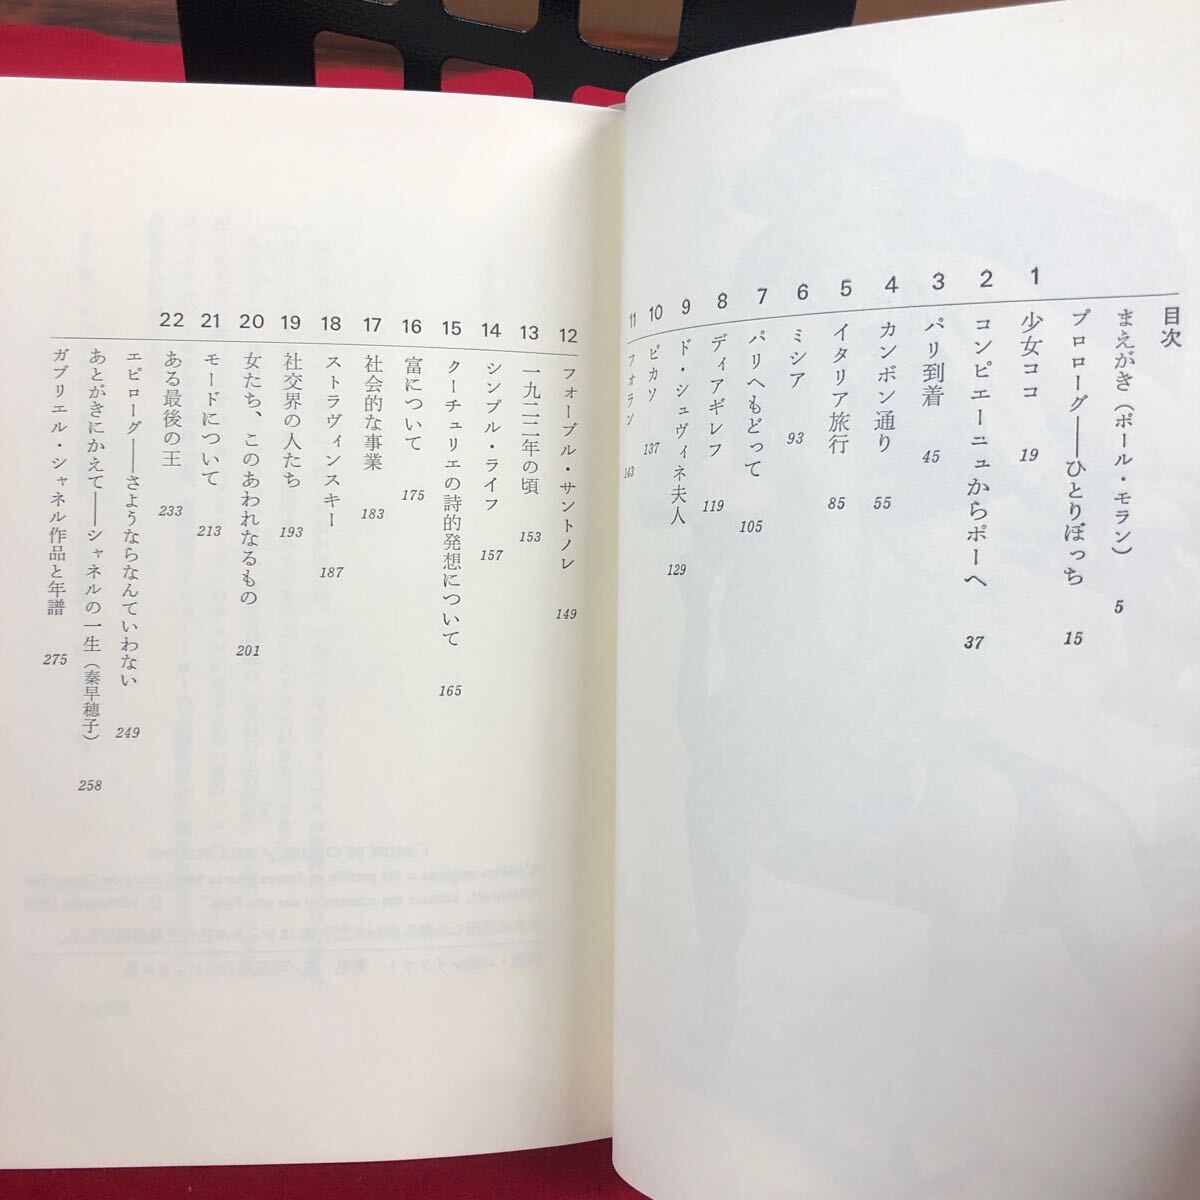 目次
まえがき（ポール・モラン） 5
プロローグ――ひとりぼっち 15
1 少女ココ 19
2 コンピエーニュからポーへ 37
3 パリ到着 45
4 カンボン通り 55
5 イタリア旅行 85
6 ミシア 93
7 パリへもどって 105
8 ディアギレフ 119
9 ド・シュヴィネ夫人 129
10 ピカソ 137
11 フォラン 143
12 フォーブル・サントノレ 149
13 一九二二年の頃 153
14 シンプル・ライフ 157
15 クーチュリエの詩的発想について 165
16 富について 175
17 社会的な事業 183
18 ストラヴィンスキー 187
19 社交界の人たち 193
20 女たち、このあわれなるもの 201
21 モードについて 213
22 ある最後の王 233
エピローグ――さようならなんていわない 249
あとがきにかえて――シャネルの一生（秦早穂子） 258
ガブリエル・シャネル作品と年譜 275